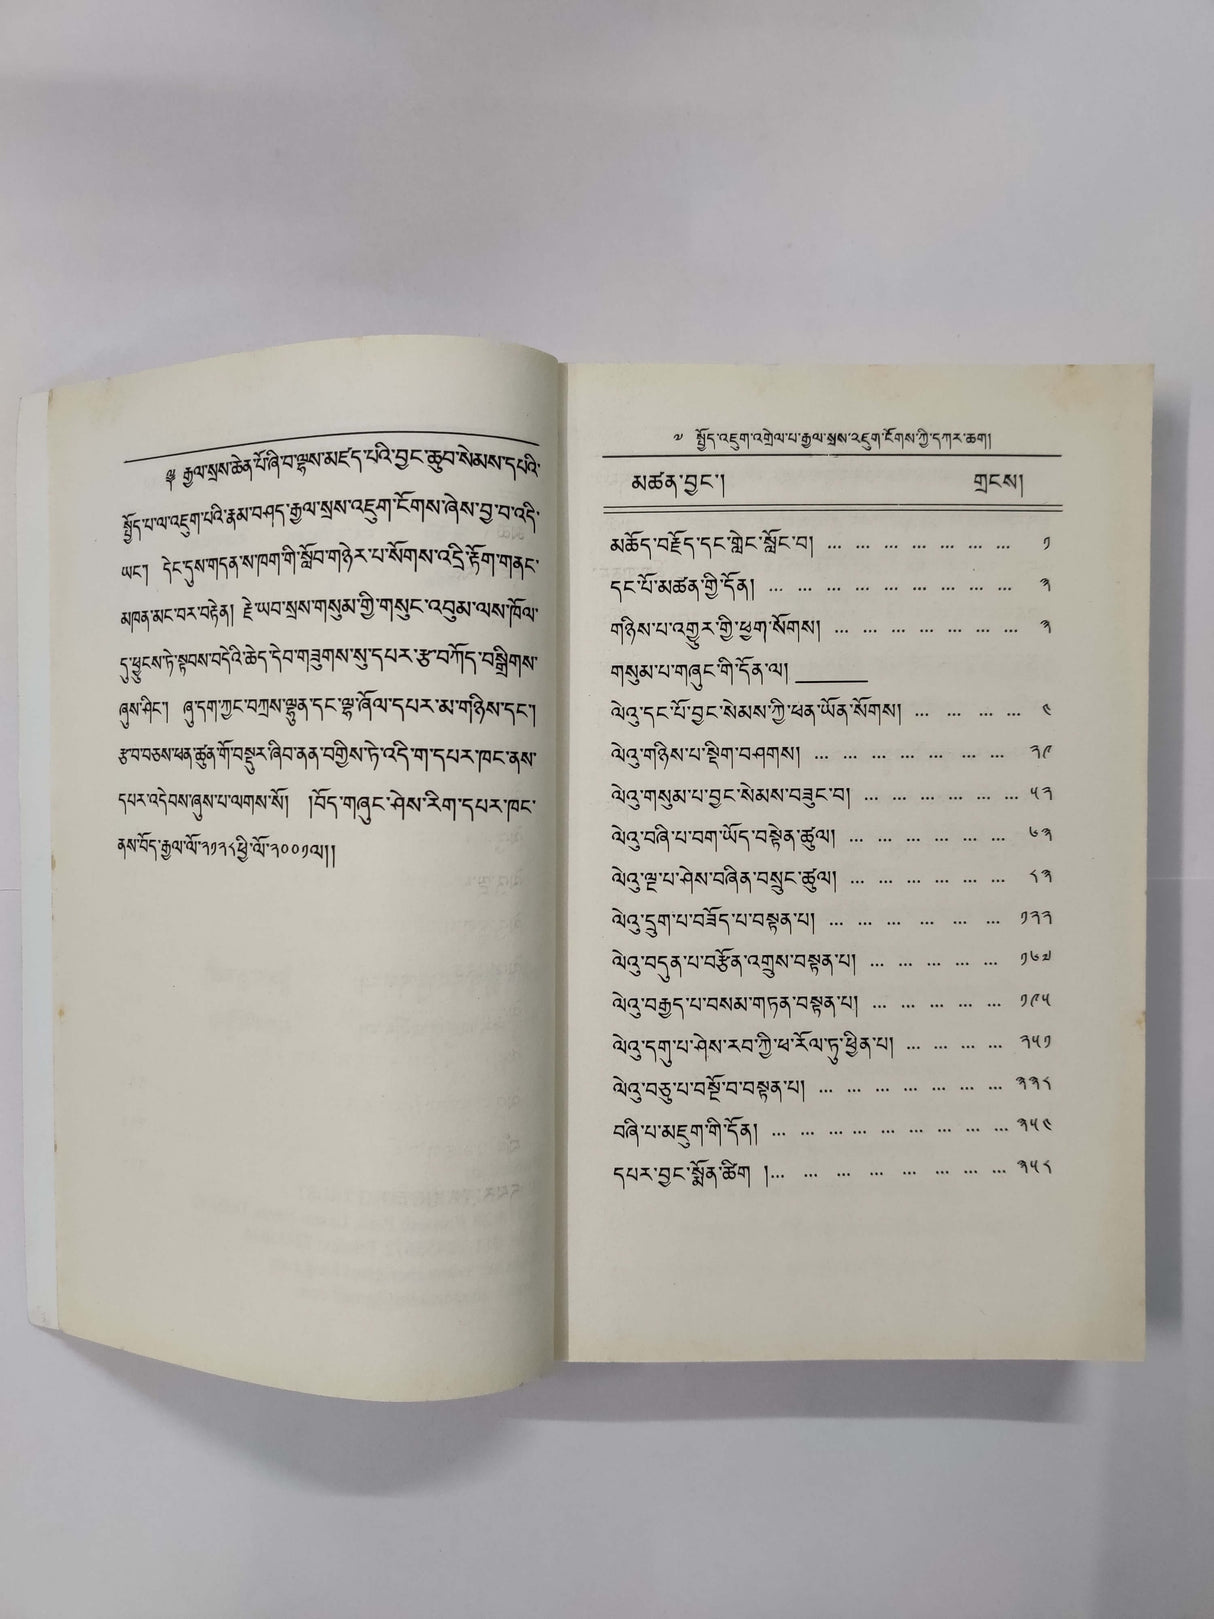 ༄༅ རྒྱལ་སྲས་ཆེན་པོ་ཞི་བ་ལྷས་མཛད་པའི་བྱང་ཆུབ་སེམས་དཔའི་
སྤྱོད་པ་ལ་འཇུག་པའི་རྣམ་བཤད་རྒྱལ་སྲས་འཇུག་ངོགས་ཞེས་བྱ་བ་འདི་
ཡང་། དེང་དུས་གདན་ས་ཁག་གི་སློབ་གཉེར་པ་སོགས་འདྲི་རྟོག་གནང་
མཁན་མང་བར་བརྟེན། རྗེ་ཡབ་སྲས་གསུམ་གྱི་གསུང་འབུམ་ལས་ཁོལ་
དུ་ཕྱུངས་ཏེ་སྟབས་བདེའི་ཆེད་དེབ་གཟུགས་སུ་དཔར་རྩ་བཀོད་བསྒྲིགས་
ཞུས་ཤིང་། ཞུ་དག་ཀྱང་བཀྲས་ལྷུན་དང་ལྷ་ཞོལ་དཔར་མ་གཉིས་དང་།
རྩ་བ་བཅས་ཕན་ཚུན་གོ་བསྡུར་ཞིབ་ནན་བགྱིས་ཏེ་འདི་ག་དཔར་ཁང་ནས་
དཔར་འདེབས་ཞུས་པ་ལགས་སོ། །བོད་གཞུང་ཤེས་རིག་དཔར་ཁང་
ནས་བོད་རྒྱལ་ལོ་༢༡༢༨ཕྱི་ལོ་༢༠༠༡ལ།།
༧ སྤྱོད་འཇུག་འགྲེལ་པ་རྒྱལ་སྲས་འཇུག་ངོགས་ཀྱི་དཀར་ཆག།
མཚན་བྱང་། གྲངས།
མཆོད་བརྗོད་དང་གླེང་སློང་བ། ... ... ... ... ... ... ... ༡
དང་པོ་མཚན་གྱི་དོན། ... ... ... ... ... ... ... ... ... ༣
གཉིས་པ་འགྱུར་གྱི་ཕྱག་སོགས། ... ... ... ... ... ... ... ༣
གསུམ་པ་གཞུང་གི་དོན་ལ། ______
ལེའུ་དང་པོ་བྱང་སེམས་ཀྱི་ཕན་ཡོན་སོགས། ... ... ... ... ༤
ལེའུ་གཉིས་པ་སྡིག་བཤགས། ... ... ... ... ... ... ... ༢༩
ལེའུ་གསུམ་པ་བྱང་སེམས་བཟུང་བ། ... ... ... ... ... ... ༥༢
ལེའུ་བཞི་པ་བག་ཡོད་བསྟེན་ཚུལ། ... ... ... ... ... ... ༦༣
ལེའུ་ལྔ་པ་ཤེས་བཞིན་བསྲུང་ཚུལ། ... ... ... ... ... ... ༨༣
ལེའུ་དྲུག་པ་བཟོད་པ་བསྟན་པ། ... ... ... ... ... ... ༡༢༢
ལེའུ་བདུན་པ་བརྩོན་འགྲུས་བསྟན་པ། ... ... ... ... ... ༡༦༧
ལེའུ་བརྒྱད་པ་བསམ་གཏན་བསྟན་པ། ... ... ... ... ... ༡༩༥
ལེའུ་དགུ་པ་ཤེས་རབ་ཀྱི་ཕ་རོལ་ཏུ་ཕྱིན་པ། ... ... ... ... ༢༥༡
ལེའུ་བཅུ་པ་བསྔོ་བ་བསྟན་པ། ... ... ... ... ... ... ... ༣༣༨
བཞི་པ་མཇུག་གི་དོན། ... ... ... ... ... ... ... ... ... ༣༥༤
དཔར་བྱང་སྨོན་ཚིག །... ... ... ... ... ... ... ... ༣༥༨